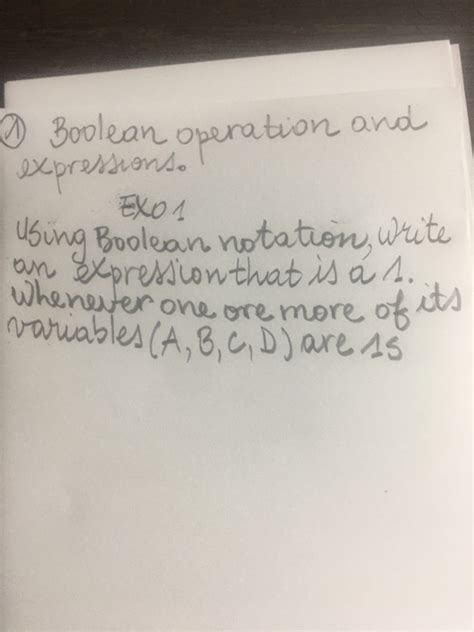 ① Boolean operation and
expressions.
EX01
Using Boolean notation, write
an expression that is a 1.
whenever one ore more of its
variables (A, B, C, D) are 1s